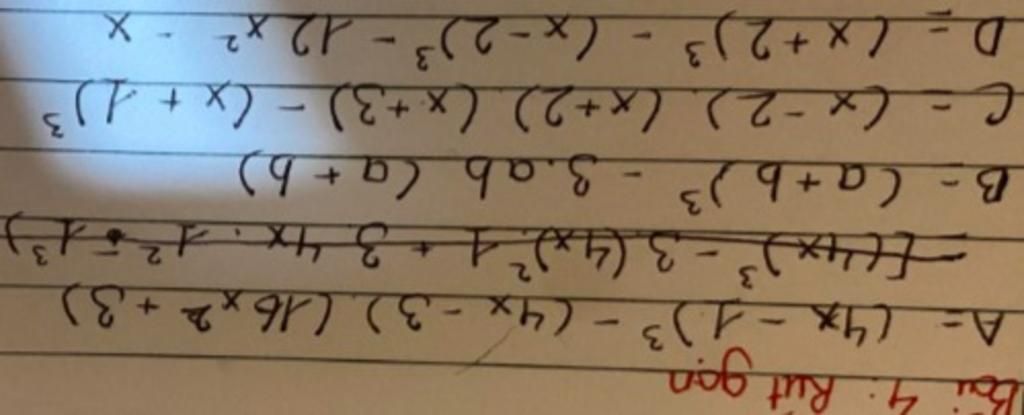 Bài 4: Rút gọn
A = (4x - 1)³ - (4x - 3)(16x² + 3)
= [(4x)³ - 3(4x)².1 + 3.4x.1² - 1³)
B = (a + b)³ - 3.ab (a + b)
C = (x - 2)(x + 2)(x + 3) - (x + 1)³
D = (x + 2)³ - (x - 2)³ - 12x² - x